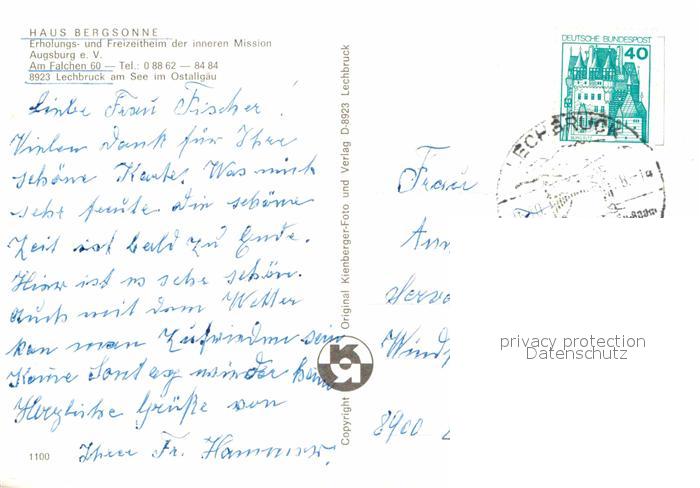 HAUS BERGSONNE
Erholungs- und Freizeitheim der inneren Mission
Augsburg e. V.
Am Falchen 60 — Tel.: 0 88 62 — 84 84
8923 Lechbruck am See im Ostallgäu
Liebe Frau Fischer!
Vielen Dank für Ihre
schöne Karte. Was mich
sehr freute. Die schöne
Zeit ist bald zu Ende.
Hier ist es sehr schön.
Auch mit dem Wetter
kan man Zufrieden sein
Keine Sontag wieder
Herzliche Grüße von
Ihrer Fr. Hammer.
1100
Copyright Original Kienberger-Foto und Verlag D-8923 Lechbruck
DEUTSCHE BUNDESPOST
40
LECHBRUCK
Frau
Ann
Serva
Wind
8900
privacy protection
Datenschutz